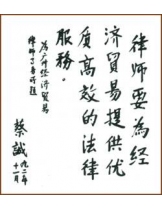 律师要为经
济贸易提供优
质高效的法律
服务。
为广州经济贸易
律师事务所题
蔡诚
九二年
十一月